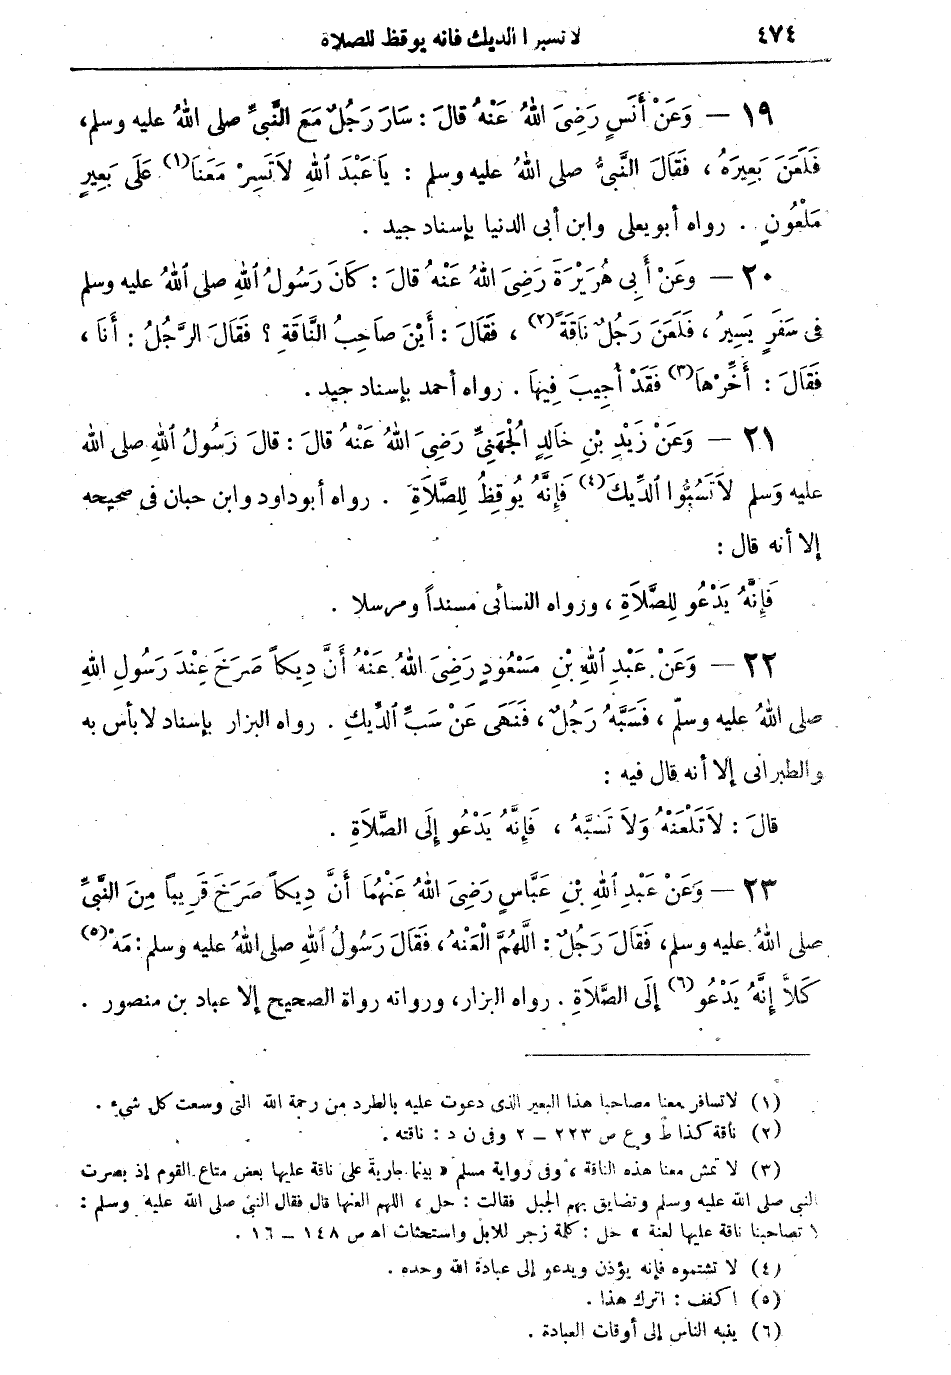 ٤٧٤ لا تسبوا الديك فانه يوقظ للصلاة
١٩ — وَعَنْ أَنَسٍ رَضِىَ اللهُ عَنْهُ قَالَ : سَارَ رَجُلٌ مَعَ النَّبِىِّ صلى اللهُ عليه وسلم،
فَلَعَنَ بَعِيرَهُ ، فَقَالَ النَّبِىُّ صلى اللهُ عليه وسلم : يَا عَبْدَ اللهِ لاَ تَسِرْ مَعَنَا(١) عَلَى بَعِيرٍ
مَلْعُونٍ . رواه أبو يعلى وابن أبى الدنيا بإسناد جيد .
٢٠ — وعَنْ أَبِى هُرَيْرَةَ رَضِىَ اللهُ عَنْهُ قالَ : كَانَ رَسُولُ اللهِ صلى اللهُ عليه وسلم
فى سَفَرٍ يَسِيرُ ، فَلَعَنَ رَجُلٌ نَاقَةً(٢) ، فَقَالَ : أَيْنَ صَاحِبُ النَّاقَةِ ؟ فَقَالَ الرَّجُلُ : أَنَا ،
فَقَالَ : أَخِّرْهَا(٣) فَقَدْ أُجِيبَ فِيهَا . رواه أحمد بإسناد جيد .
٢١ — وَعَنْ زَيْدِ بْنِ خَالِدٍ الْجُهَنِىِّ رَضِىَ اللهُ عَنْهُ قالَ : قالَ رَسُولُ اللهِ صلى الله
عليه وَسلم لاَ تَسُبُّوا الدِّيكَ(٤) فَإِنَّهُ يُوقِظُ لِلصَّلاَةِ . رواه أبو داود وابن حبان فى صحيحه
إلا أنه قال :
فَإِنَّهُ يَدْعُو لِلصَّلاَةِ ، ورواه النسائى مسنداً ومرسلا .
٢٢ — وَعَنْ عَبْدِ اللهِ بْنِ مَسْعُودٍ رَضِىَ اللهُ عَنْهُ أَنَّ دِيكاً صَرَخَ عِنْدَ رَسُولِ اللهِ
صلى اللهُ عليه وسلّم ، فَسَبَّهُ رَجُلٌ ، فَنَهَى عَنْ سَبِّ الدِّيكِ . رواه البزار بإسناد لا بأس به
والطبرانى إلا أنه قال فيه :
قالَ : لاَ تَلْعَنْهُ وَلاَ تَسُبَّهُ ، فَإِنَّهُ يَدْعُو إِلَى الصَّلاَةِ .
٢٣ — وَعَنْ عَبْدِ اللهِ بْنِ عَبَّاسٍ رَضِىَ اللهُ عَنْهُمَا أَنَّ دِيكاً صَرَخَ قَرِيباً مِنَ النَّبِىِّ
صلى اللهُ عليه وسلم، فَقَالَ رَجُلٌ : اللَّهُمَّ الْعَنْهُ ، فَقَالَ رَسُولُ اللهِ صلى اللهُ عليه وسلم : مَهْ(٥)
كَلاَّ إِنَّهُ يَدْعُو(٦) إِلَى الصَّلاَةِ . رواه البزار، ورواته رواة الصحيح إلا عباد بن منصور .
(١) لا تسافر معنا مصاحبا هذا البعير الذى دعوت عليه بالطرد من رحمة الله التى وسعت كل شىء .
(٢) ناقة كذا ط وع ص ٢٢٣ — ٢ وفى ن د : ناقته .
(٣) لا تمش معنا هذه الناقة ، وفى رواية مسلم « بينما جارية على ناقة عليها بعض متاع القوم إذ بصرت
النبى صلى الله عليه وسلم وتضايق بهم الجبل فقالت : حل ، اللهم العنها قال فقال النبى صلى الله عليه وسلم :
لا تصاحبنا ناقة عليها لعنة » حل : كلمة زجر للابل واستحثاث اه ص ١٤٨ — ١٦ .
(٤) لا تشتموه فإنه يؤذن ويدعو إلى عبادة الله وحده .
(٥) اكفف : اترك هذا .
(٦) ينبه الناس إلى أوقات العبادة .